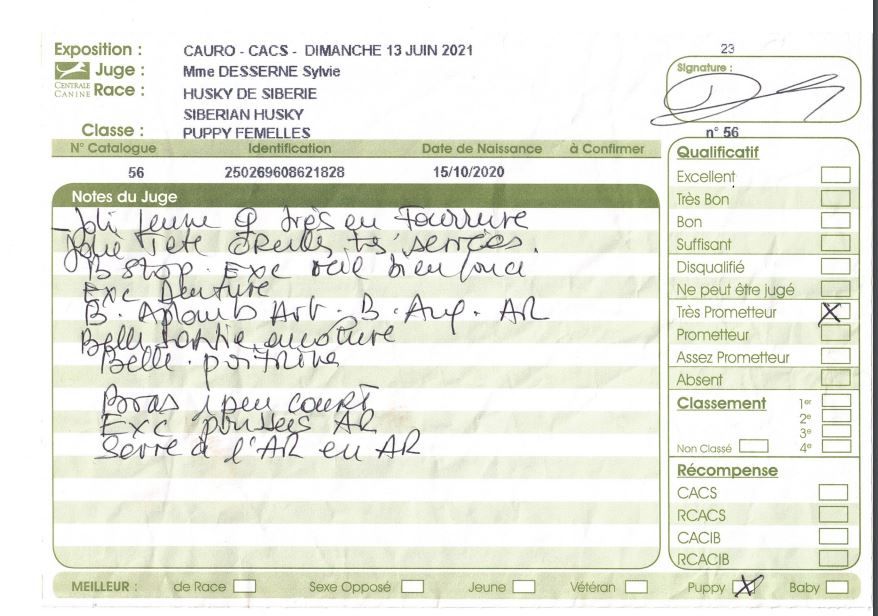 Exposition : CAURO - CACS - DIMANCHE 13 JUIN 2021
Juge : Mme DESSERNE Sylvie
CENTRALE CANINE
Race : HUSKY DE SIBERIE
SIBERIAN HUSKY
Classe : PUPPY FEMELLES
23
Signature :
n° 56
N° Catalogue Identification Date de Naissance à Confirmer
56 250269608621828 15/10/2020
Notes du Juge
Joli jeune ♀ très en Fourrure
Jolie Tete oreilles très serrées.
B stop. Exc oeil bien foncé
Exc Denture
B. Aplomb . B. Ang. AR
Belle encolure
Belle poitrine
Bras 1 peu court
Exc poussees AR
Serre à l'AR en AR
Qualificatif
Excellent
Très Bon
Bon
Suffisant
Disqualifié
Ne peut être jugé
Très Prometteur X
Prometteur
Assez Prometteur
Absent
Classement 1er
2e
3e
Non Classé 4e
Récompense
CACS
RCACS
CACIB
RCACIB
MEILLEUR : de Race Sexe Opposé Jeune Vétéran Puppy X Baby